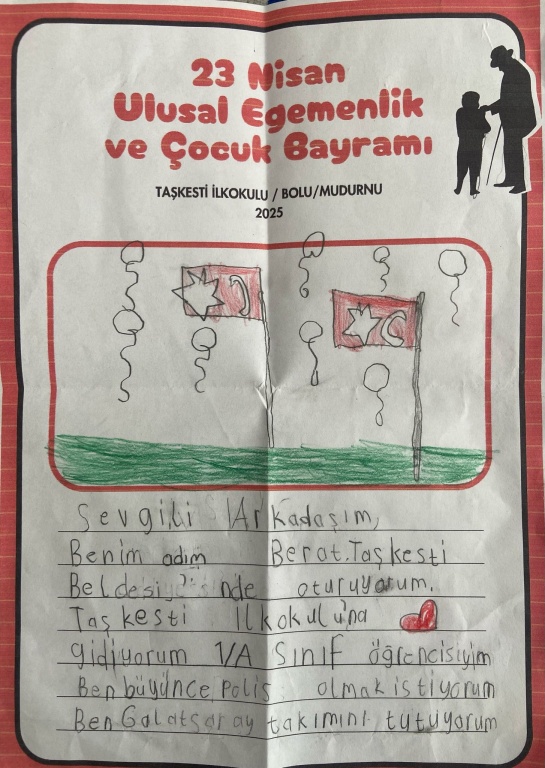 23 Nisan
Ulusal Egemenlik
ve Çocuk Bayramı
TAŞKESTİ İLKOKULU / BOLU/MUDURNU
2025
Sevgili Arkadaşım,
Benim adım Berat. Taşkesti
Beldesi nde oturuyorum.
Taşkesti İlkokulu'na
gidiyorum 1/A Sınıf öğrencisiyim
Ben büyünce polis olmak istiyorum
Ben Galatsaray takımını tutuyorum